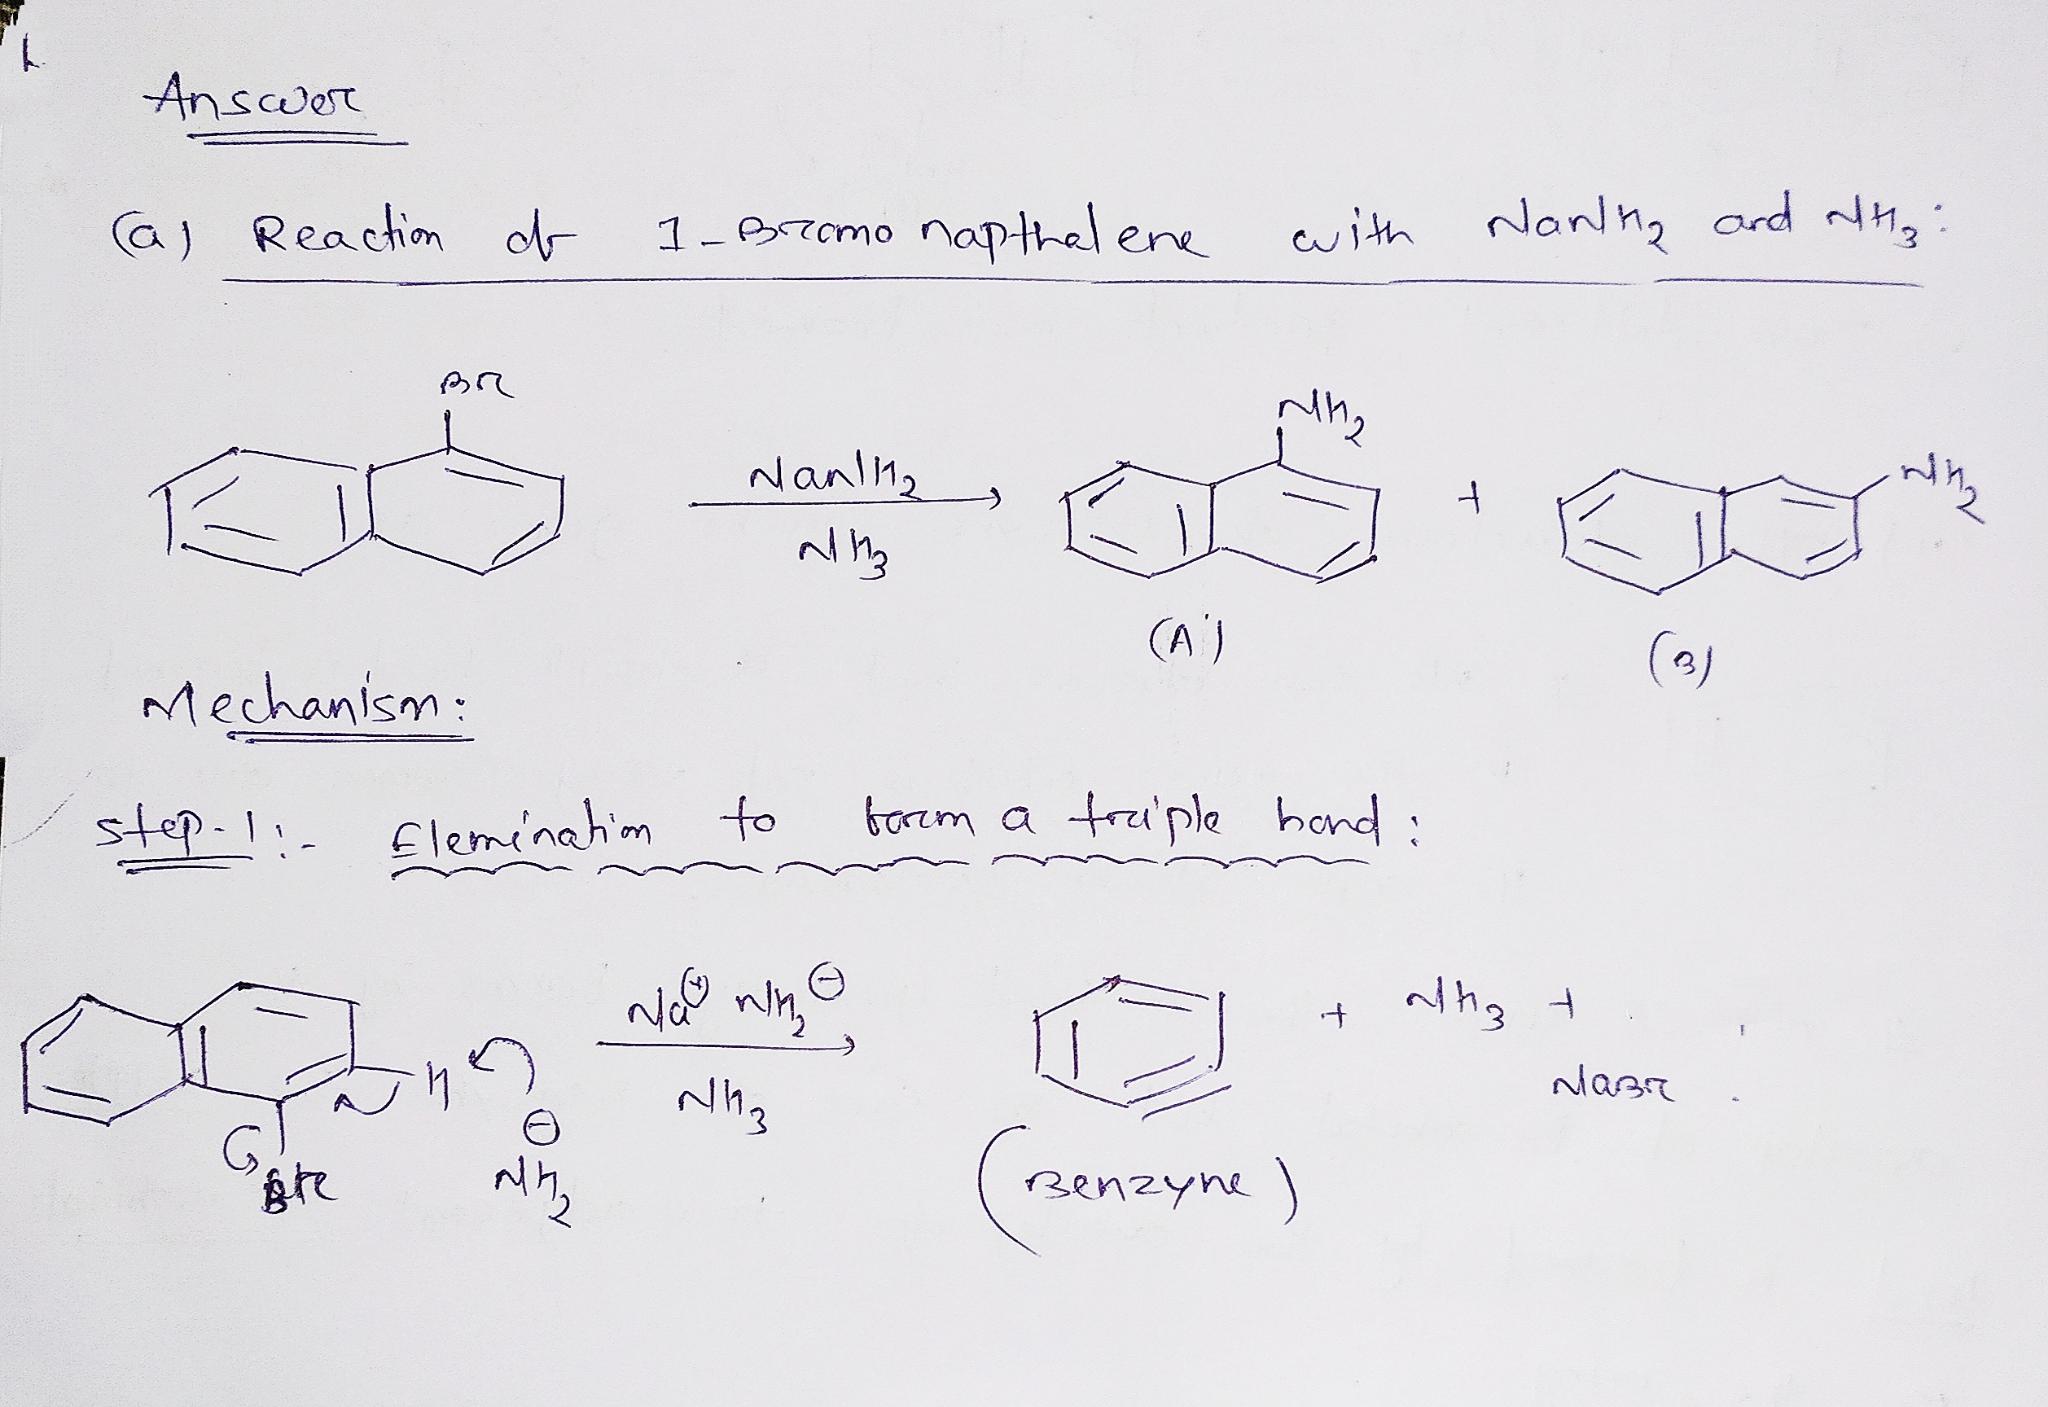 Answer
(a) Reaction of 1-Bromo napthalene with NaNH2 and NH3:
Br
NH2
NaNH2
NH2
+
NH3
(A)
(B)
Mechanism:
Step-1:- Elemination to form a triple bond:
Na⊕ NH2⊖
+ NH3 +
H
NH3
NaBr
⊖
Br
NH2
(Benzyne)